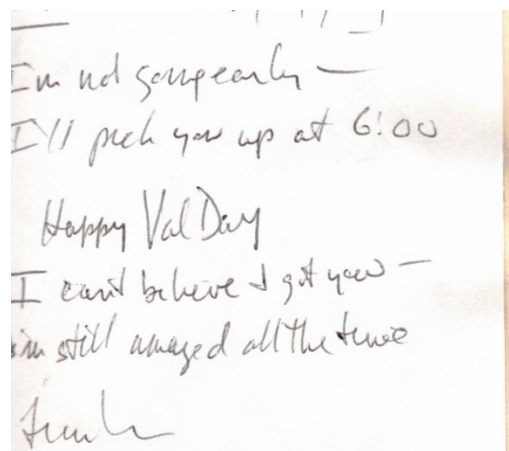 I'm not going early —
I'll pick you up at 6:00
Happy Val Day
I can't believe I got you —
im still amazed all the time